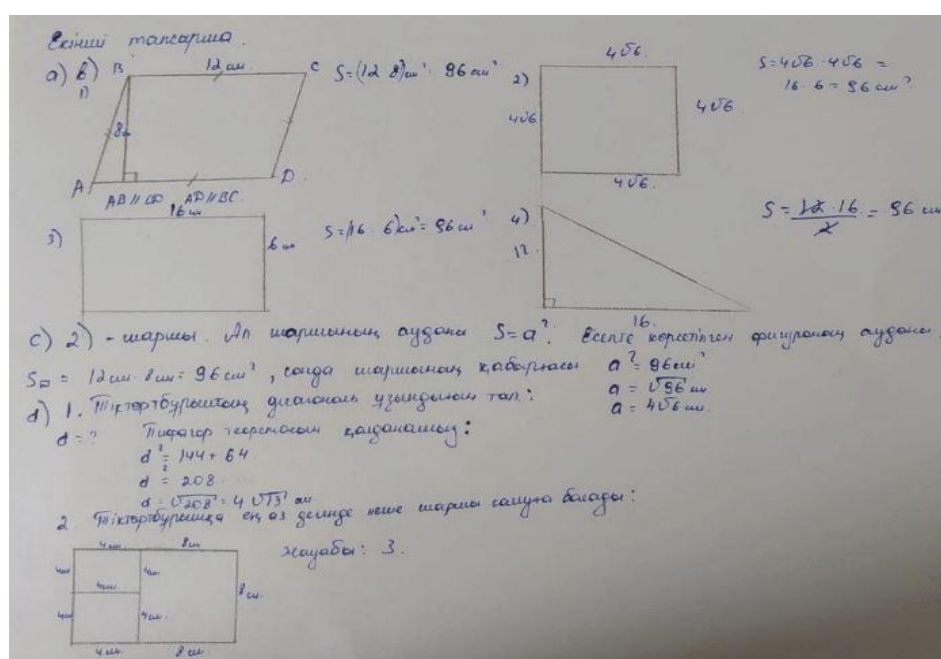 Екінші тапсырма.
а) в)
1) B 12 см. C
8см
A D.
AB // CD AD // BC.
S=(12 · 8)см² = 96 см²
2) 4√6.
4√6 4√6.
4√6.
S=4√6 · 4√6 =
16 · 6 = 96 см².
3) 16 см
6 см
S=(16 · 6)см² = 96 см²
4) 12
16.
S = 12 · 16 / 2 = 96 см
с) 2) - шаршы. Ал шаршының ауданы S=a². Есепте көрсетілген фигураның ауданы
S▱ = 12 см · 8 см = 96 см², сонда шаршының қабырғасы a² = 96 см²
a = √96 см
a = 4√6 см.
d) 1. Тіктөртбұрыштың диагональ ұзындығын тап:
d = ? Пифагор теоремасын қолданамыз:
d² = 144 + 64
d² = 208
d = √208 = 4√13 см
2. Тіктөртбұрышқа ең аз дегенде неше шаршы салуға болады:
4см 8см
4см 4см. 4см. 8см.
4см 4см.
4 см. 8 см.
жауабы: 3.